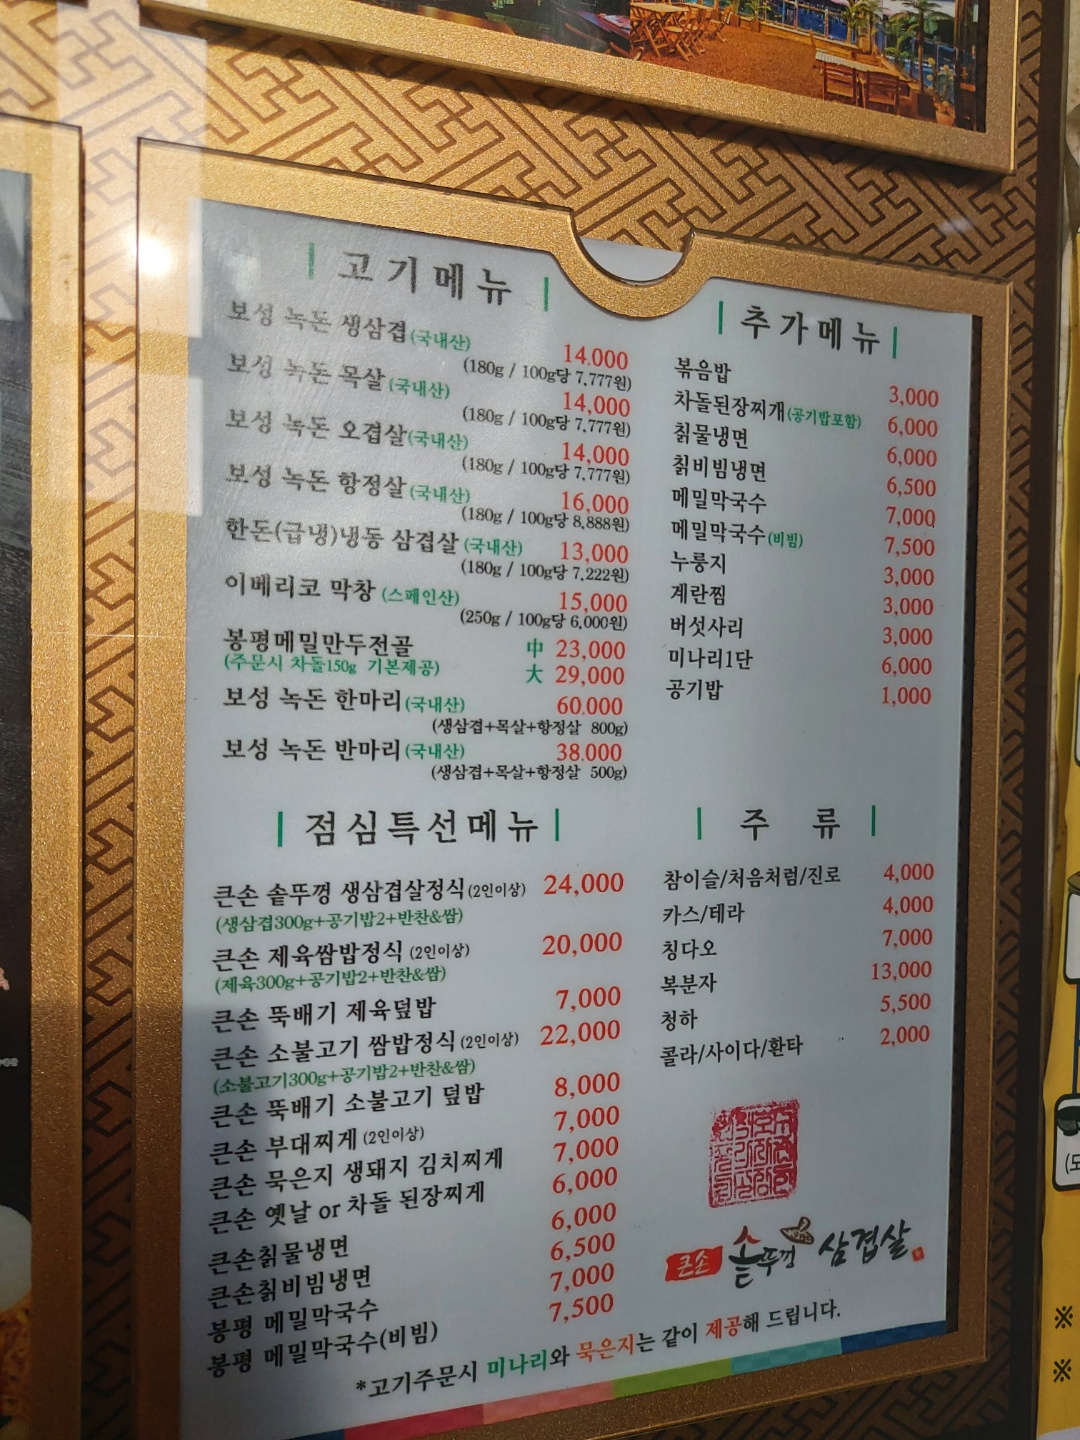 고기메뉴
보성 녹돈 생삼겹(국내산) 14,000
(180g / 100g당 7,777원)
보성 녹돈 목살(국내산) 14,000
(180g / 100g당 7,777원)
보성 녹돈 오겹살(국내산) 14,000
(180g / 100g당 7,777원)
보성 녹돈 항정살(국내산) 16,000
(180g / 100g당 8,888원)
한돈(급냉)냉동 삼겹살(국내산) 13,000
(180g / 100g당 7,222원)
이베리코 막창 (스페인산) 15,000
(250g / 100g당 6,000원)
봉평메밀만두전골 中 23,000
(주문시 차돌150g 기본제공) 大 29,000
보성 녹돈 한마리(국내산) 60.000
(생삼겹+목살+항정살 800g)
보성 녹돈 반마리(국내산) 38.000
(생삼겹+목살+항정살 500g)
추가메뉴
볶음밥 3,000
차돌된장찌개(공기밥포함) 6,000
칡물냉면 6,000
칡비빔냉면 6,500
메밀막국수 7,000
메밀막국수(비빔) 7,500
누룽지 3,000
계란찜 3,000
버섯사리 3,000
미나리1단 6,000
공기밥 1,000
점심특선메뉴
큰손 솥뚜껑 생삼겹살정식(2인이상) 24,000
(생삼겹300g+공기밥2+반찬&쌈)
큰손 제육쌈밥정식 (2인이상) 20,000
(제육300g+공기밥2+반찬&쌈)
큰손 뚝배기 제육덮밥 7,000
큰손 소불고기 쌈밥정식(2인이상) 22,000
(소불고기300g+공기밥2+반찬&쌈)
큰손 뚝배기 소불고기 덮밥 8,000
큰손 부대찌게(2인이상) 7,000
큰손 묵은지 생돼지 김치찌게 7,000
큰손 옛날 or 차돌 된장찌게 6,000
큰손칡물냉면 6,000
큰손칡비빔냉면 6,500
봉평 메밀막국수 7,000
봉평 메밀막국수(비빔) 7,500
주 류
참이슬/처음처럼/진로 4,000
카스/테라 4,000
칭다오 7,000
복분자 13,000
청하 5,500
콜라/사이다/환타 2,000
큰손 솥뚜껑 삼겹살
*고기주문시 미나리와 묵은지는 같이 제공해 드립니다.
※
※